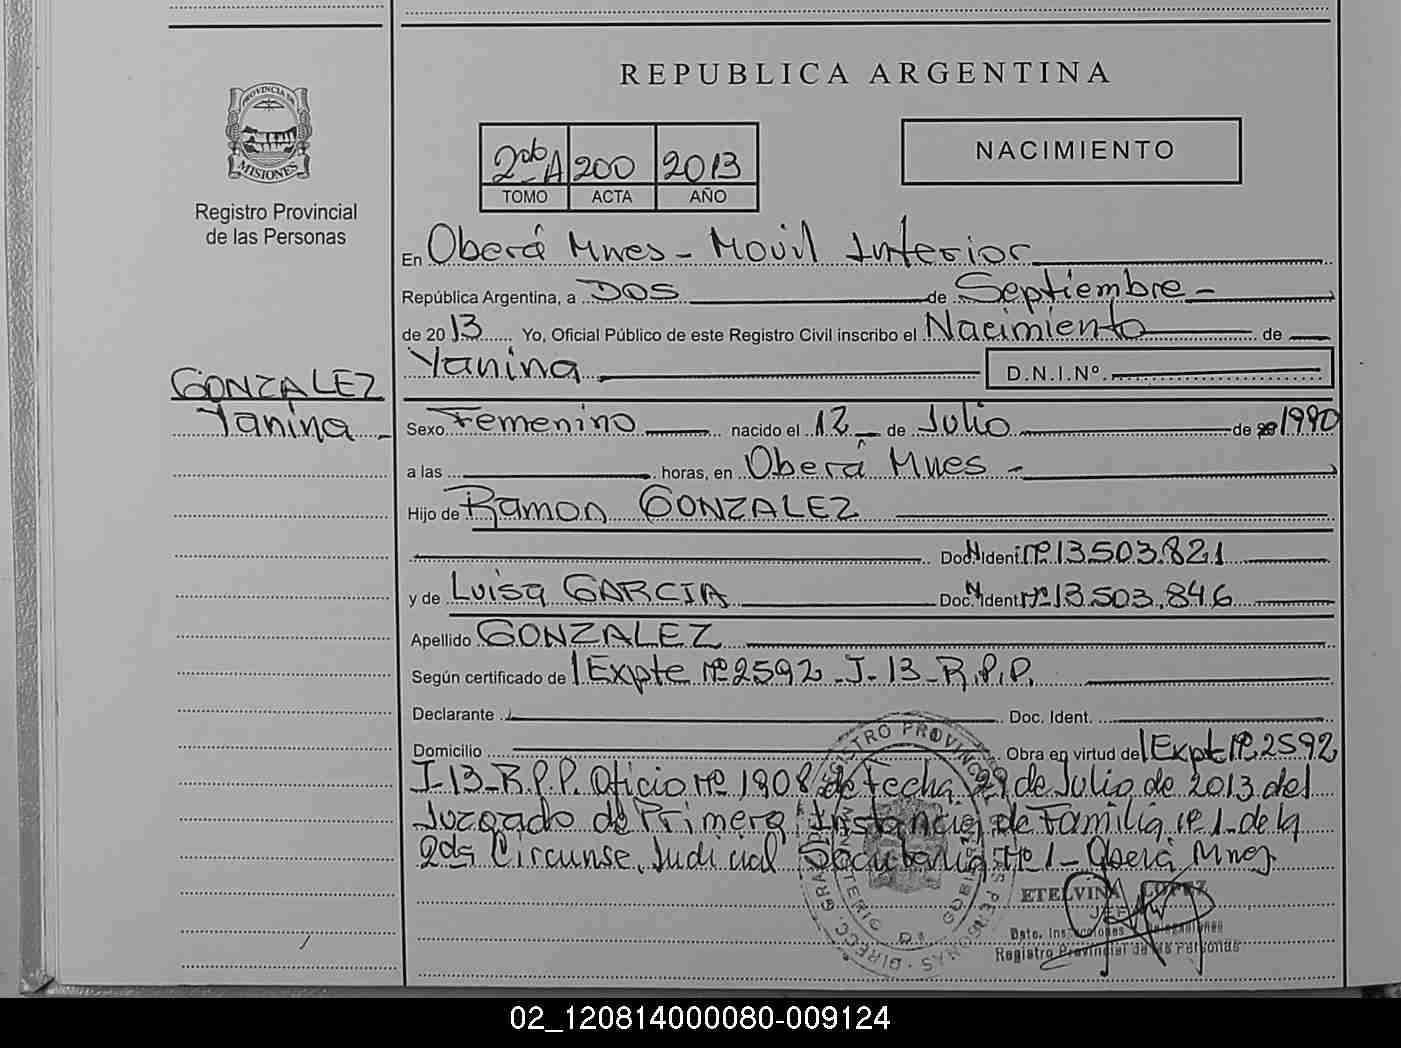 REPUBLICA ARGENTINA
PROVINCIA DE
MISIONES
Registro Provincial
de las Personas
NACIMIENTO
A 200 2013
TOMO ACTA AÑO
En Oberá Mnes - Movil Interior
República Argentina, a DOS de Septiembre -
de 20 13 Yo, Oficial Público de este Registro Civil inscribo el Nacimiento de
Yanina D.N.I.Nº.
GONZALEZ
Yanina -
Sexo Femenino nacido el 12 de Julio de 1990
a las horas, en Oberá Mnes -
Hijo de Ramon GONZALEZ
Doc. Ident. Nº 13.503.821
y de Luisa GARCIA Doc. Ident. Nº 13.503.846
Apellido GONZALEZ
Según certificado de Expte Nº 2592 - J - 13 - R.P.P.
Declarante Doc. Ident.
Domicilio Obra en virtud de Expt Nº 2592
J-13-R.P.P. Oficio Nº 1908 de Fecha 29 de Julio de 2013 del
Juzgado de Primera Instancia de Familia Nº 1 - de la
2da Circunsc. Judicial Secretaria Nº 1 - Oberá Mnes.
ETELVINA LOPEZ
JEFA
Registro Provincial de las Personas
02_120814000080-009124